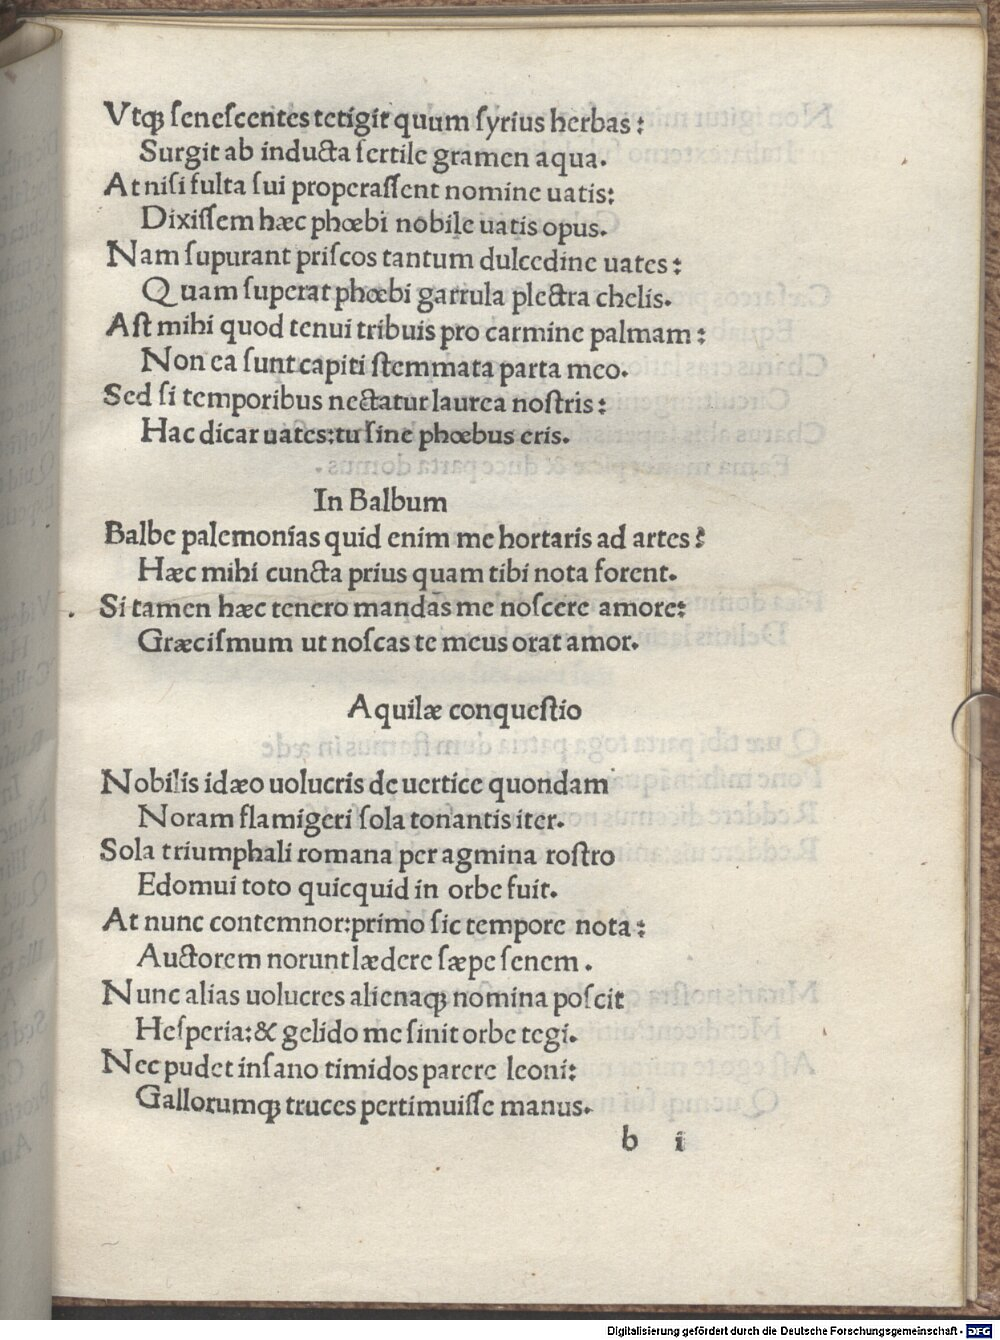 Vtqꝫ ſeneſcentes tetigit quum ſyrius herbas:
Surgit ab inducta fertile gramen aqua.
At niſi fulta ſui properaſſent nomine uatis:
Dixiſſem hæc phœbi nobile uatis opus.
Nam ſupurant priſcos tantum dulcedine uates:
Quam ſuperat phœbi garrula plectra chelis.
Aſt mihi quod tenui tribuis pro carmine palmam:
Non ea ſunt capiti ſtemmata parta meo.
Sed ſi temporibus nectatur laurea noſtris:
Hac dicar uates:tu ſine phœbus eris.
In Balbum
Balbe palemonias quid enim me hortaris ad artes?
Hæc mihi cuncta prius quam tibi nota forent.
Si tamen hæc tenero mandas me noſcere amore:
Græciſmum ut noſcas te meus orat amor.
Aquilæ conqueſtio
Nobilis idæo uolucris de uertice quondam
Noram flamigeri ſola tonantis iter.
Sola triumphali romana per agmina roſtro
Edomui toto quicquid in orbe fuit.
At nunc contemnor:primo ſic tempore nota:
Auctorem norunt lædere ſæpe ſenem.
Nunc alias uolucres alienaqꝫ nomina poſcit
Heſperia:& gelido me ſinit orbe tegi.
Nec pudet inſano timidos parere leoni:
Gallorumqꝫ truces pertimuiſſe manus.
b i
Digitalisierung gefördert durch die Deutsche Forschungsgemeinschaft - DFG